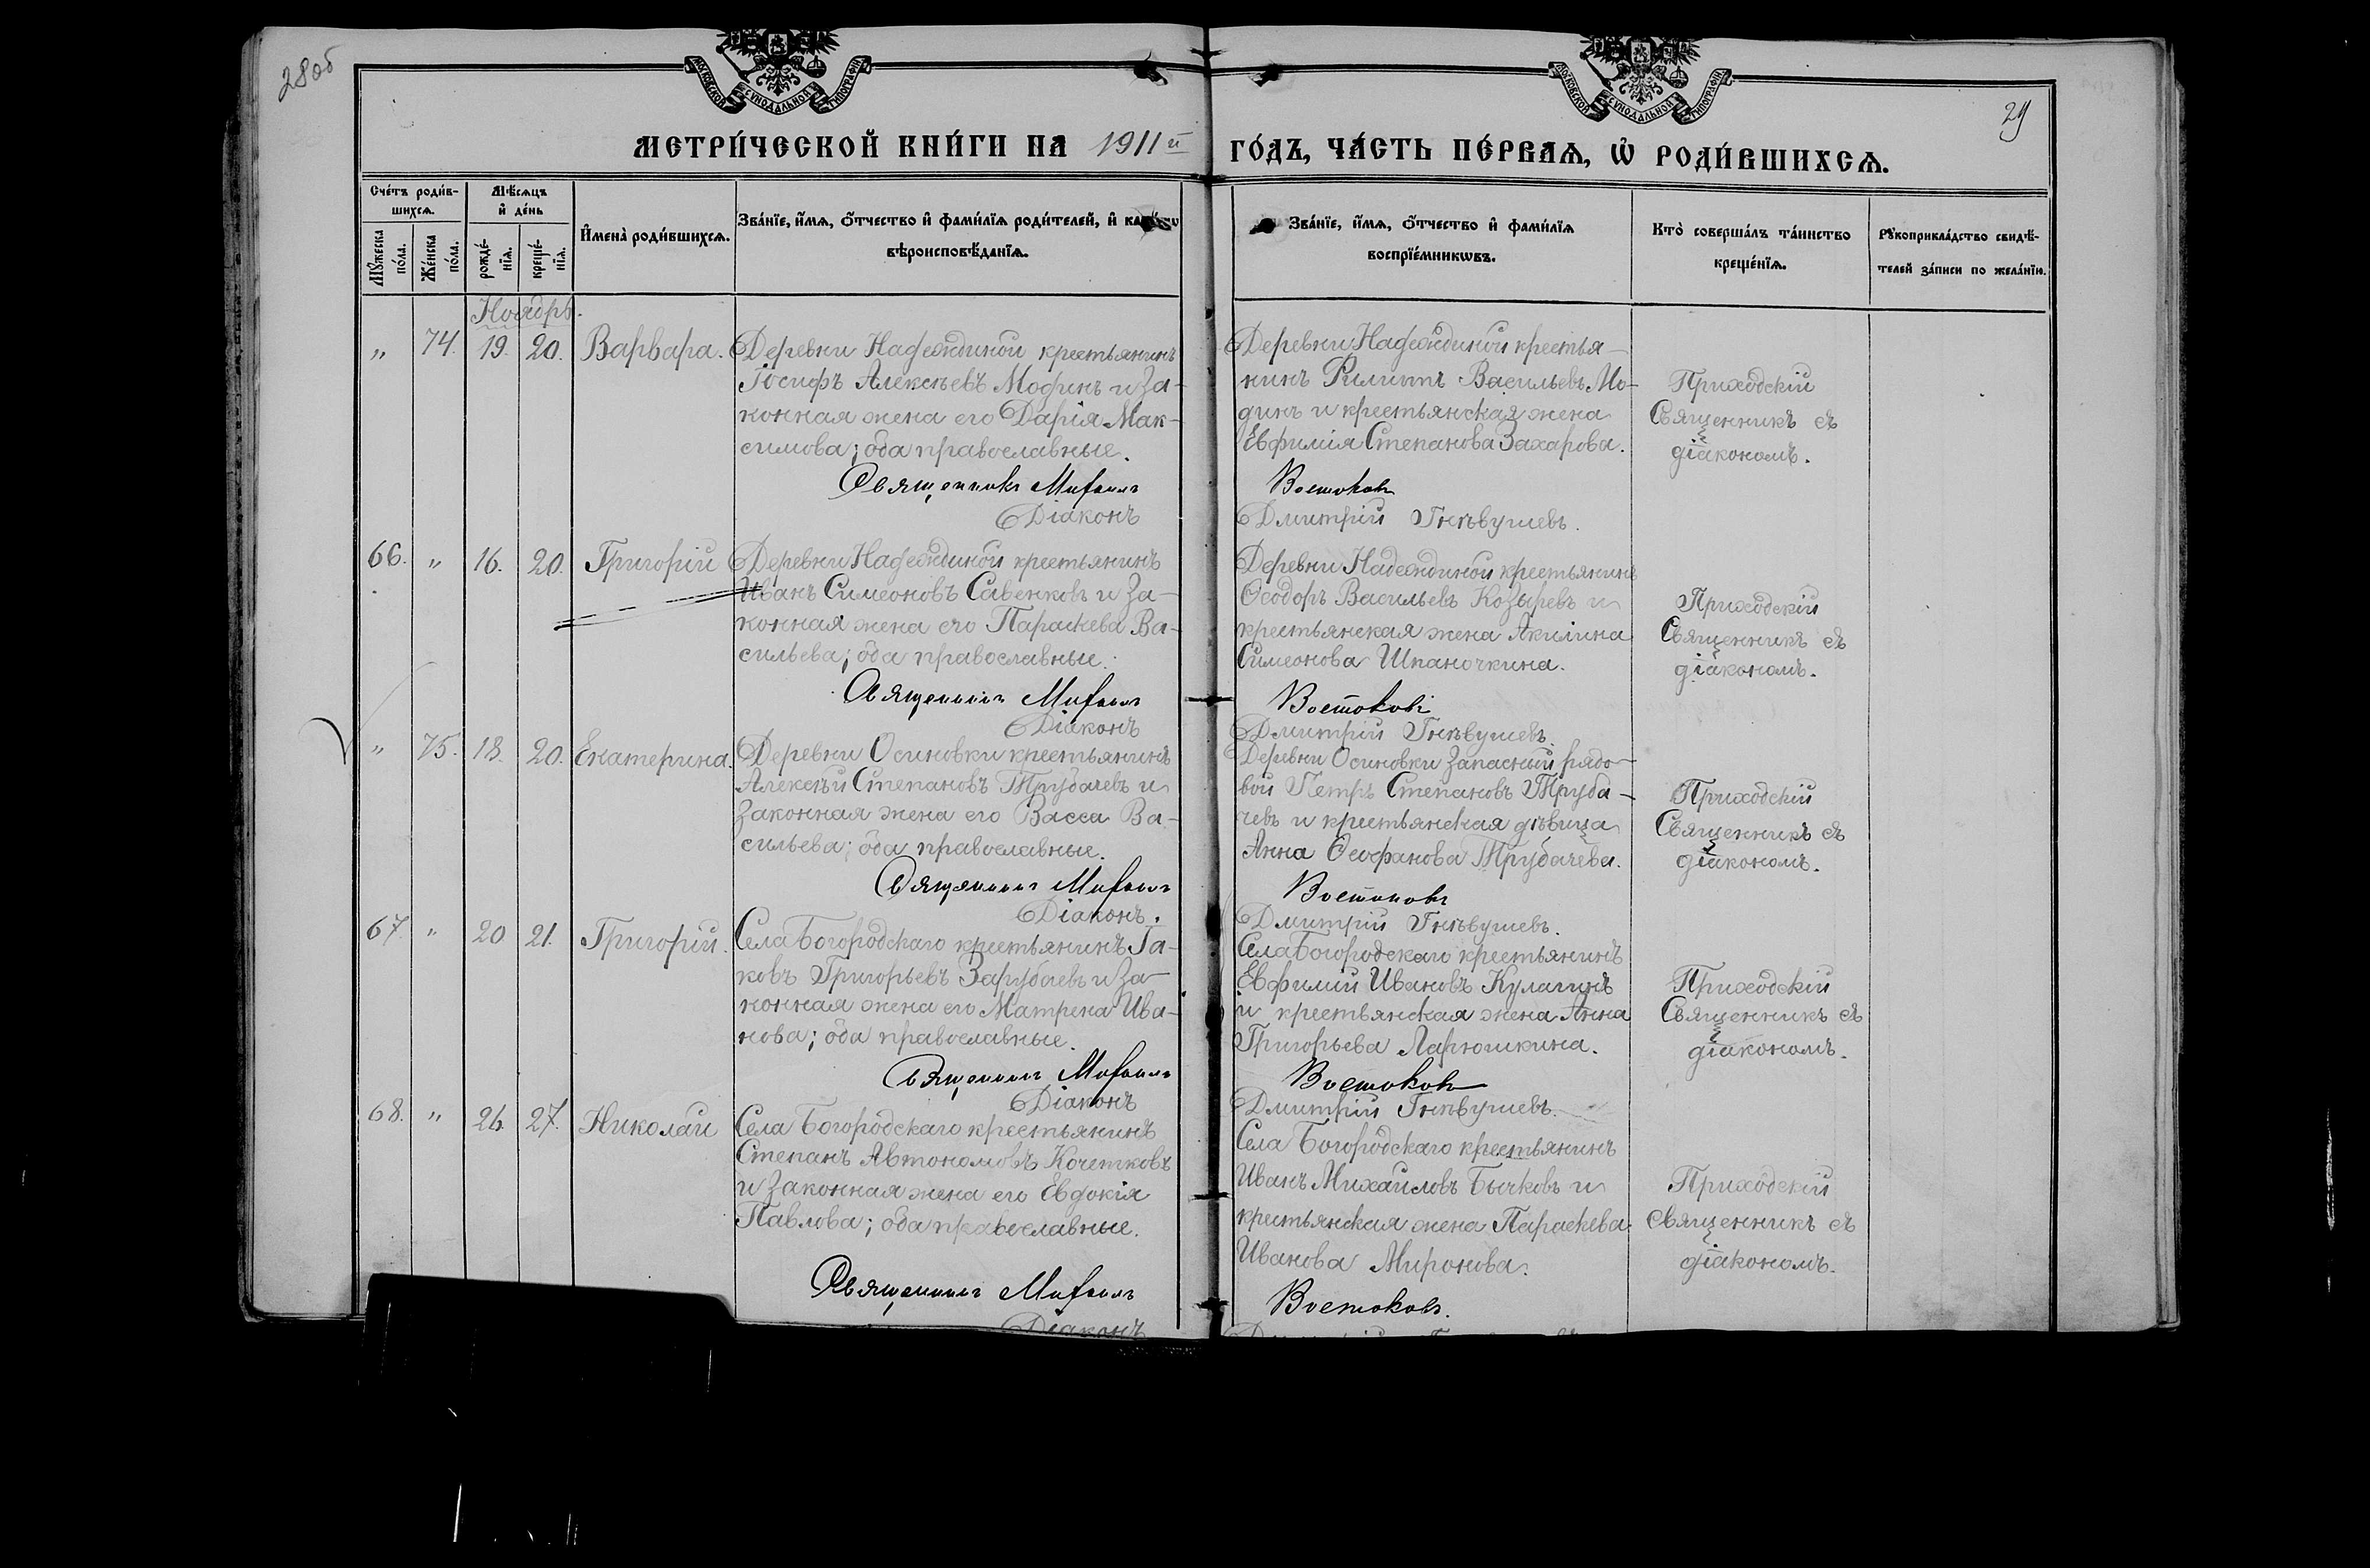 28об
29
МОСКОВСКОЙ СѴНОДАЛЬНОЙ ТИПОГРАФІИ
МОСКОВСКОЙ СѴНОДАЛЬНОЙ ТИПОГРАФІИ
МЕТРИ́ЧЕСКОЙ КНИ́ГИ НА 1911й ГО́ДЪ, ЧА́СТЬ ПЕ́РВАѦ, Ѽ РОДИ́ВШИХСѦ.
Сче́тъ роди́в-
шихсѧ.
Мꙋ́жеска по́ла.
Же́нска по́ла.
Мѣ́сѧцъ
и҆ де́нь
рожде́-
нїѧ.
креще́-
нїѧ.
И҆мена̀ роди́вшихсѧ.
Зва́нїе, и҆́мѧ, ѻ҆́тчество и҆ фами́лїѧ роди́телей, и҆
вѣроисповѣ́данїѧ.
Зва́нїе, и҆́мѧ, ѻ҆́тчество и҆ фами́лїѧ
воспрїе́мникѡвъ.
Кто̀ соверша́лъ та́инство
креще́нїѧ.
Рꙋкоприкла́дство свидѣ́-
телей за́писи по жела́нїю.
Ноябрь.
„ 74. 19. 20. Варвара.
Деревни Надеждиной крестьянинъ
Іосифъ Алексѣевъ Модинъ и за-
конная жена его Дарія Мак-
симова; оба православные.
Священникъ Михаилъ
Діаконъ
Деревни Надеждиной крестья-
нинъ Филиппъ Васильевъ Мо-
динъ и крестьянская жена
Евфимія Степанова Захарова.
Востоковъ
Дмитрій Гнѣвушевъ.
Приходскій
Священникъ съ
діакономъ.
66. „ 16. 20. Григорій
Деревни Надеждиной крестьянинъ
Иванъ Симеоновъ Савенковъ и за-
конная жена его Параскева Ва-
сильева; оба православные.
Священникъ Михаилъ
Діаконъ
Деревни Надеждиной крестьянинъ
Ѳеодоръ Васильевъ Козыревъ и
крестьянская жена Акилина
Симеонова Шпаночкина.
Востоковъ
Дмитрій Гнѣвушевъ.
Приходскій
Священникъ съ
діакономъ.
„ 75. 18. 20. Екатерина.
Деревни Осиновки крестьянинъ
Алексѣй Степановъ Трубачевъ и
законная жена его Васса Ва-
сильева; оба православные.
Священникъ Михаилъ
Діаконъ.
Деревни Осиновки запасный рядо-
вой Петръ Степановъ Труба-
чевъ и крестьянская дѣвица
Анна Ѳеофанова Трубачева.
Востоковъ
Дмитрій Гнѣвушевъ.
Приходскій
Священникъ съ
діакономъ.
67. „ 20 21. Григорій.
Села Богородскаго крестьянинъ Іа-
ковъ Григорьевъ Зарубаевъ и за-
конная жена его Матрена Ива-
нова; оба православные.
Священникъ Михаилъ
Діаконъ
Села Богородскаго крестьянинъ
Евфимій Ивановъ Кулагинъ
и крестьянская жена Анна
Григорьева Ларюшкина.
Востоковъ
Дмитрій Гнѣвушевъ.
Приходскій
Священникъ съ
діакономъ.
68. „ 26. 27. Николай
Села Богородскаго крестьянинъ
Степанъ Автономовъ Кочетковъ
и законная жена его Евдокія
Павлова; оба православные.
Священникъ Михаилъ
Діаконъ
Села Богородскаго крестьянинъ
Иванъ Михайловъ Бычковъ и
крестьянская жена Параскева
Иванова Миронова.
Востоковъ.
Приходскій
священникъ съ
діакономъ.